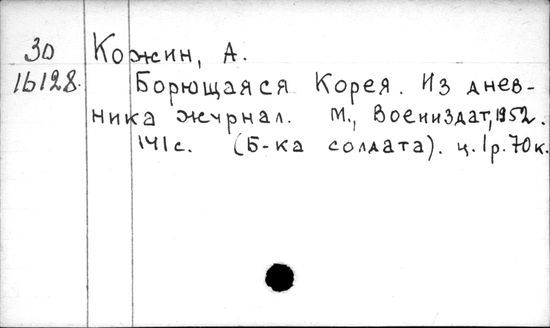 30 Кожин, А.
16128. Борющаяся Корея. Из днев-
ника журнал. М., Воениздат, 1952.
141 с. (Б-ка солдата). ц. 1р. 70к.